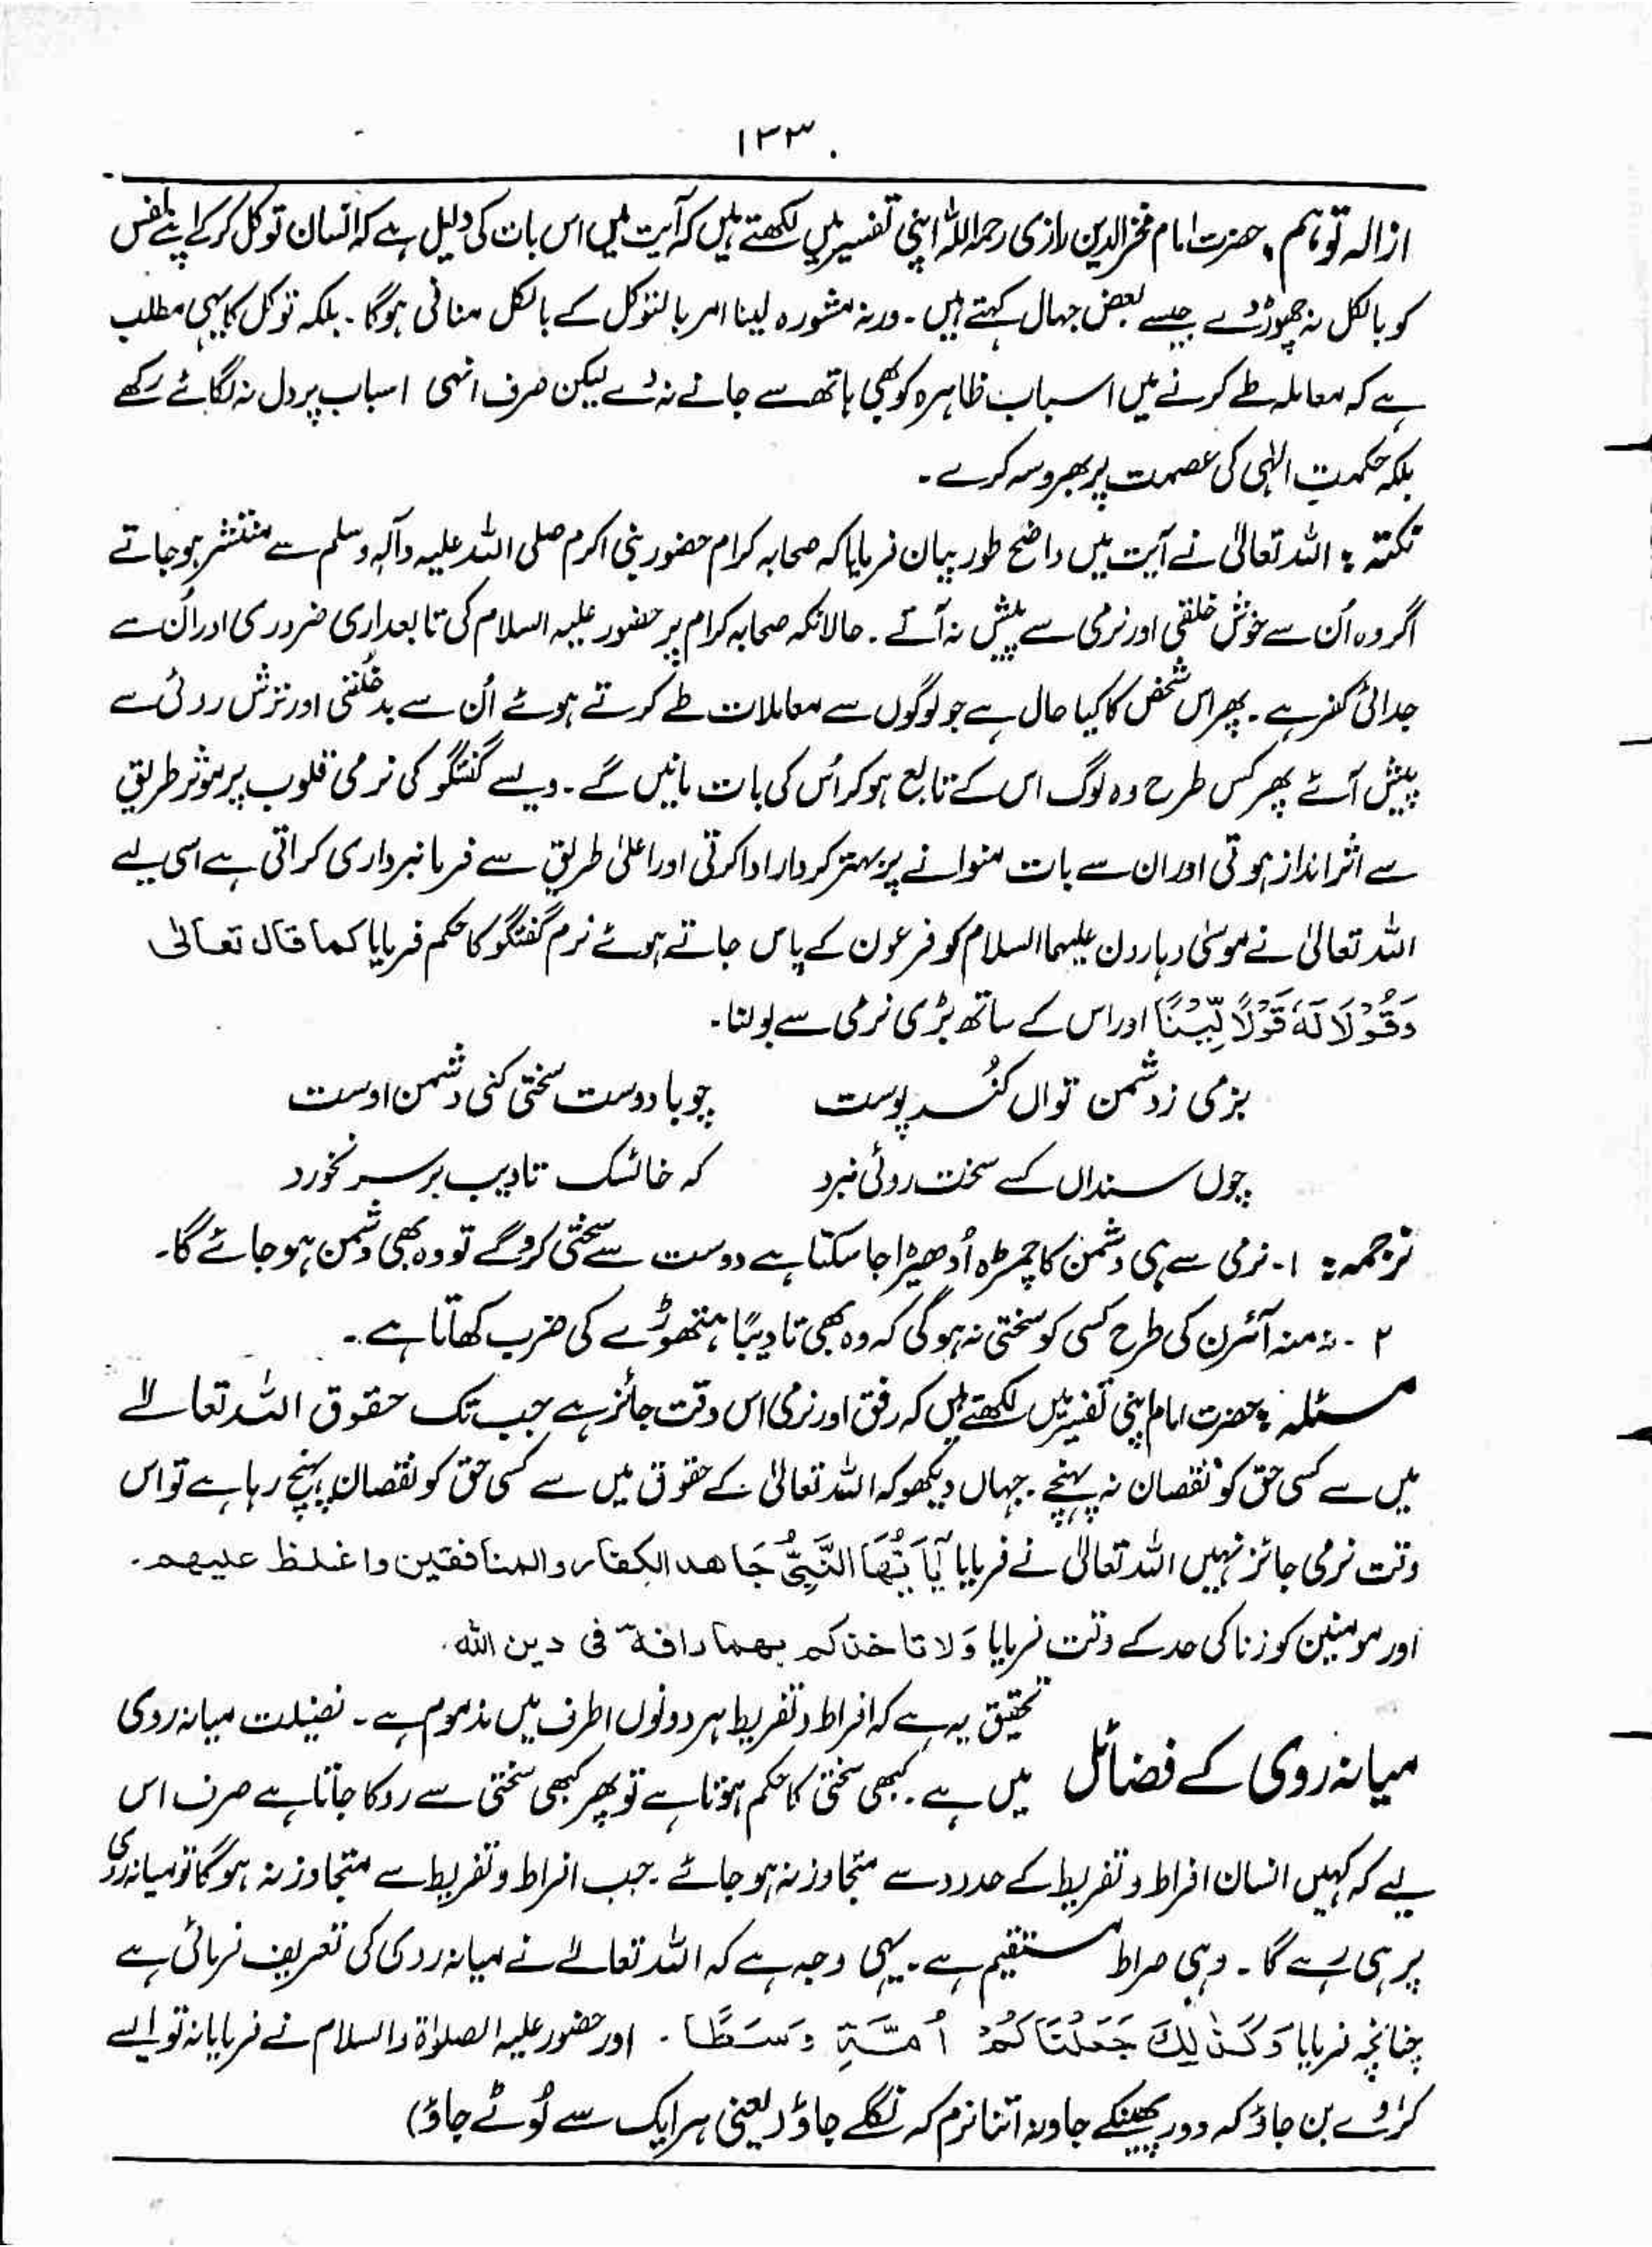 ۱۳۳
ازالہ توہم ؛ حضرت امام فخرالدین رازی رحمہ اللہ اپنی تفسیر میں لکھتے ہیں کہ آیت میں اس بات کی دلیل ہے کہ انسان توکل کر کے اپنے نفس
کو بالکل نہ چھوڑ دے جیسے بعض جہال کہتے ہیں ۔ ورنہ مشورہ لینا امر بالتوکل کے بالکل منافی ہوگا ۔ بلکہ توکل کا یہی مطلب
ہے کہ معاملہ طے کرنے میں اسباب ظاہرہ کو بھی ہاتھ سے جانے نہ دے لیکن صرف انہی اسباب پر دل نہ لگائے رکھے
بلکہ حکمتِ الٰہی کی عصمت پر بھروسہ کرے ۔
نکتہ : اللہ تعالیٰ نے آیت میں واضح طور بیان فرمایا کہ صحابہ کرام حضور نبی اکرم صلی اللہ علیہ وآلہٖ وسلم سے منتشر ہو جاتے
اگر وہ اُن سے خوش خلقی اور نرمی سے پیش نہ آتے ۔ حالانکہ صحابہ کرام پر حضور علیہ السلام کی تابعداری ضروری اور اُن سے
جدائی کفر ہے ۔ پھر اس شخص کا کیا حال ہے جو لوگوں سے معاملات طے کرتے ہوئے اُن سے بد خُلقی اور ترش روئی سے
پیش آئے پھر کس طرح وہ لوگ اس کے تابع ہو کر اُس کی بات مانیں گے ۔ ویسے گفتگو کی نرمی قلوب پر مؤثر طریق
سے اثر انداز ہوتی اور ان سے بات منوانے پر بہتر کردار ادا کرتی اور اعلیٰ طریق سے فرمانبرداری کراتی ہے اسی لیے
اللہ تعالیٰ نے موسیٰ و ہارون علیہما السلام کو فرعون کے پاس جاتے ہوئے نرم گفتگو کا حکم فرمایا کما قال تعالیٰ
وَقُوْلَا لَهٗ قَوْلًا لَّیِّنًا اور اس کے ساتھ بڑی نرمی سے بولنا ۔
بزمی زدشمن تواں کنُد پوست چوبا دوست سختی کنی دشمن اوست
چوں سنداں کسے سخت روئی نبرد کہ خائسک تادیب بر سر نخورد
ترجمہ : ۱ ۔ نرمی سے ہی دشمن کا چمڑہ اُدھیڑا جا سکتا ہے دوست سے سختی کرو گے تو وہ بھی دشمن ہو جائے گا ۔
۲ ۔ نہ منہ آئرن کی طرح کسی کو سختی نہ ہو گی کہ وہ بھی تادیبًا ہتھوڑے کی ضرب کھاتا ہے ۔
مسئلہ : حضرت امام اپنی تفسیر میں لکھتے ہیں کہ رفق اور نرمی اس وقت جائز ہے جب تک حقوق اللہ تعالےٰ
میں سے کسی حق کو نقصان نہ پہنچے ۔ جہاں دیکھو کہ اللہ تعالیٰ کے حقوق میں سے کسی حق کو نقصان پہنچ رہا ہے تو اس
وقت نرمی جائز نہیں اللہ تعالیٰ نے فرمایا یٰٓاَیُّهَا النَّبِیُّ جَاهد الکفار والمنافقین واغلظ علیهم ۔
اور مومنین کو زنا کی حد کے وقت فرمایا وَلا تاخذکم بهما رافة فی دین الله ۔
میانہ روی کے فضائل
تحقیق یہ ہے کہ افراط و تفریط ہر دونوں اطرف میں مذموم ہے ۔ فضیلت میانہ روی
میں ہے ۔ کبھی سختی کا حکم ہوتا ہے تو پھر کبھی سختی سے روکا جاتا ہے صرف اس
لیے کہ کہیں انسان افراط و تفریط کے حدود سے متجاوز نہ ہو جائے ۔ جب افراط و تفریط سے متجاوز نہ ہوگا تو میانہ روی
پر ہی رہے گا ۔ وہی صراط مستقیم ہے ۔ یہی وجہ ہے کہ اللہ تعالےٰ نے میانہ روی کی تعریف فرمائی ہے
چنانچہ فرمایا وَکَذٰلِکَ جَعَلْنَاکُمْ اُمَّةً وَسَطًا ۔ اور حضور علیہ الصلوٰۃ والسلام نے فرمایا نہ تو ایسے
کڑوے بن جاؤ کہ دور پھینکے جاو نہ اتنا نرم کہ نگلے جاؤ (یعنی ہر ایک سے لُوٹے جاؤ)